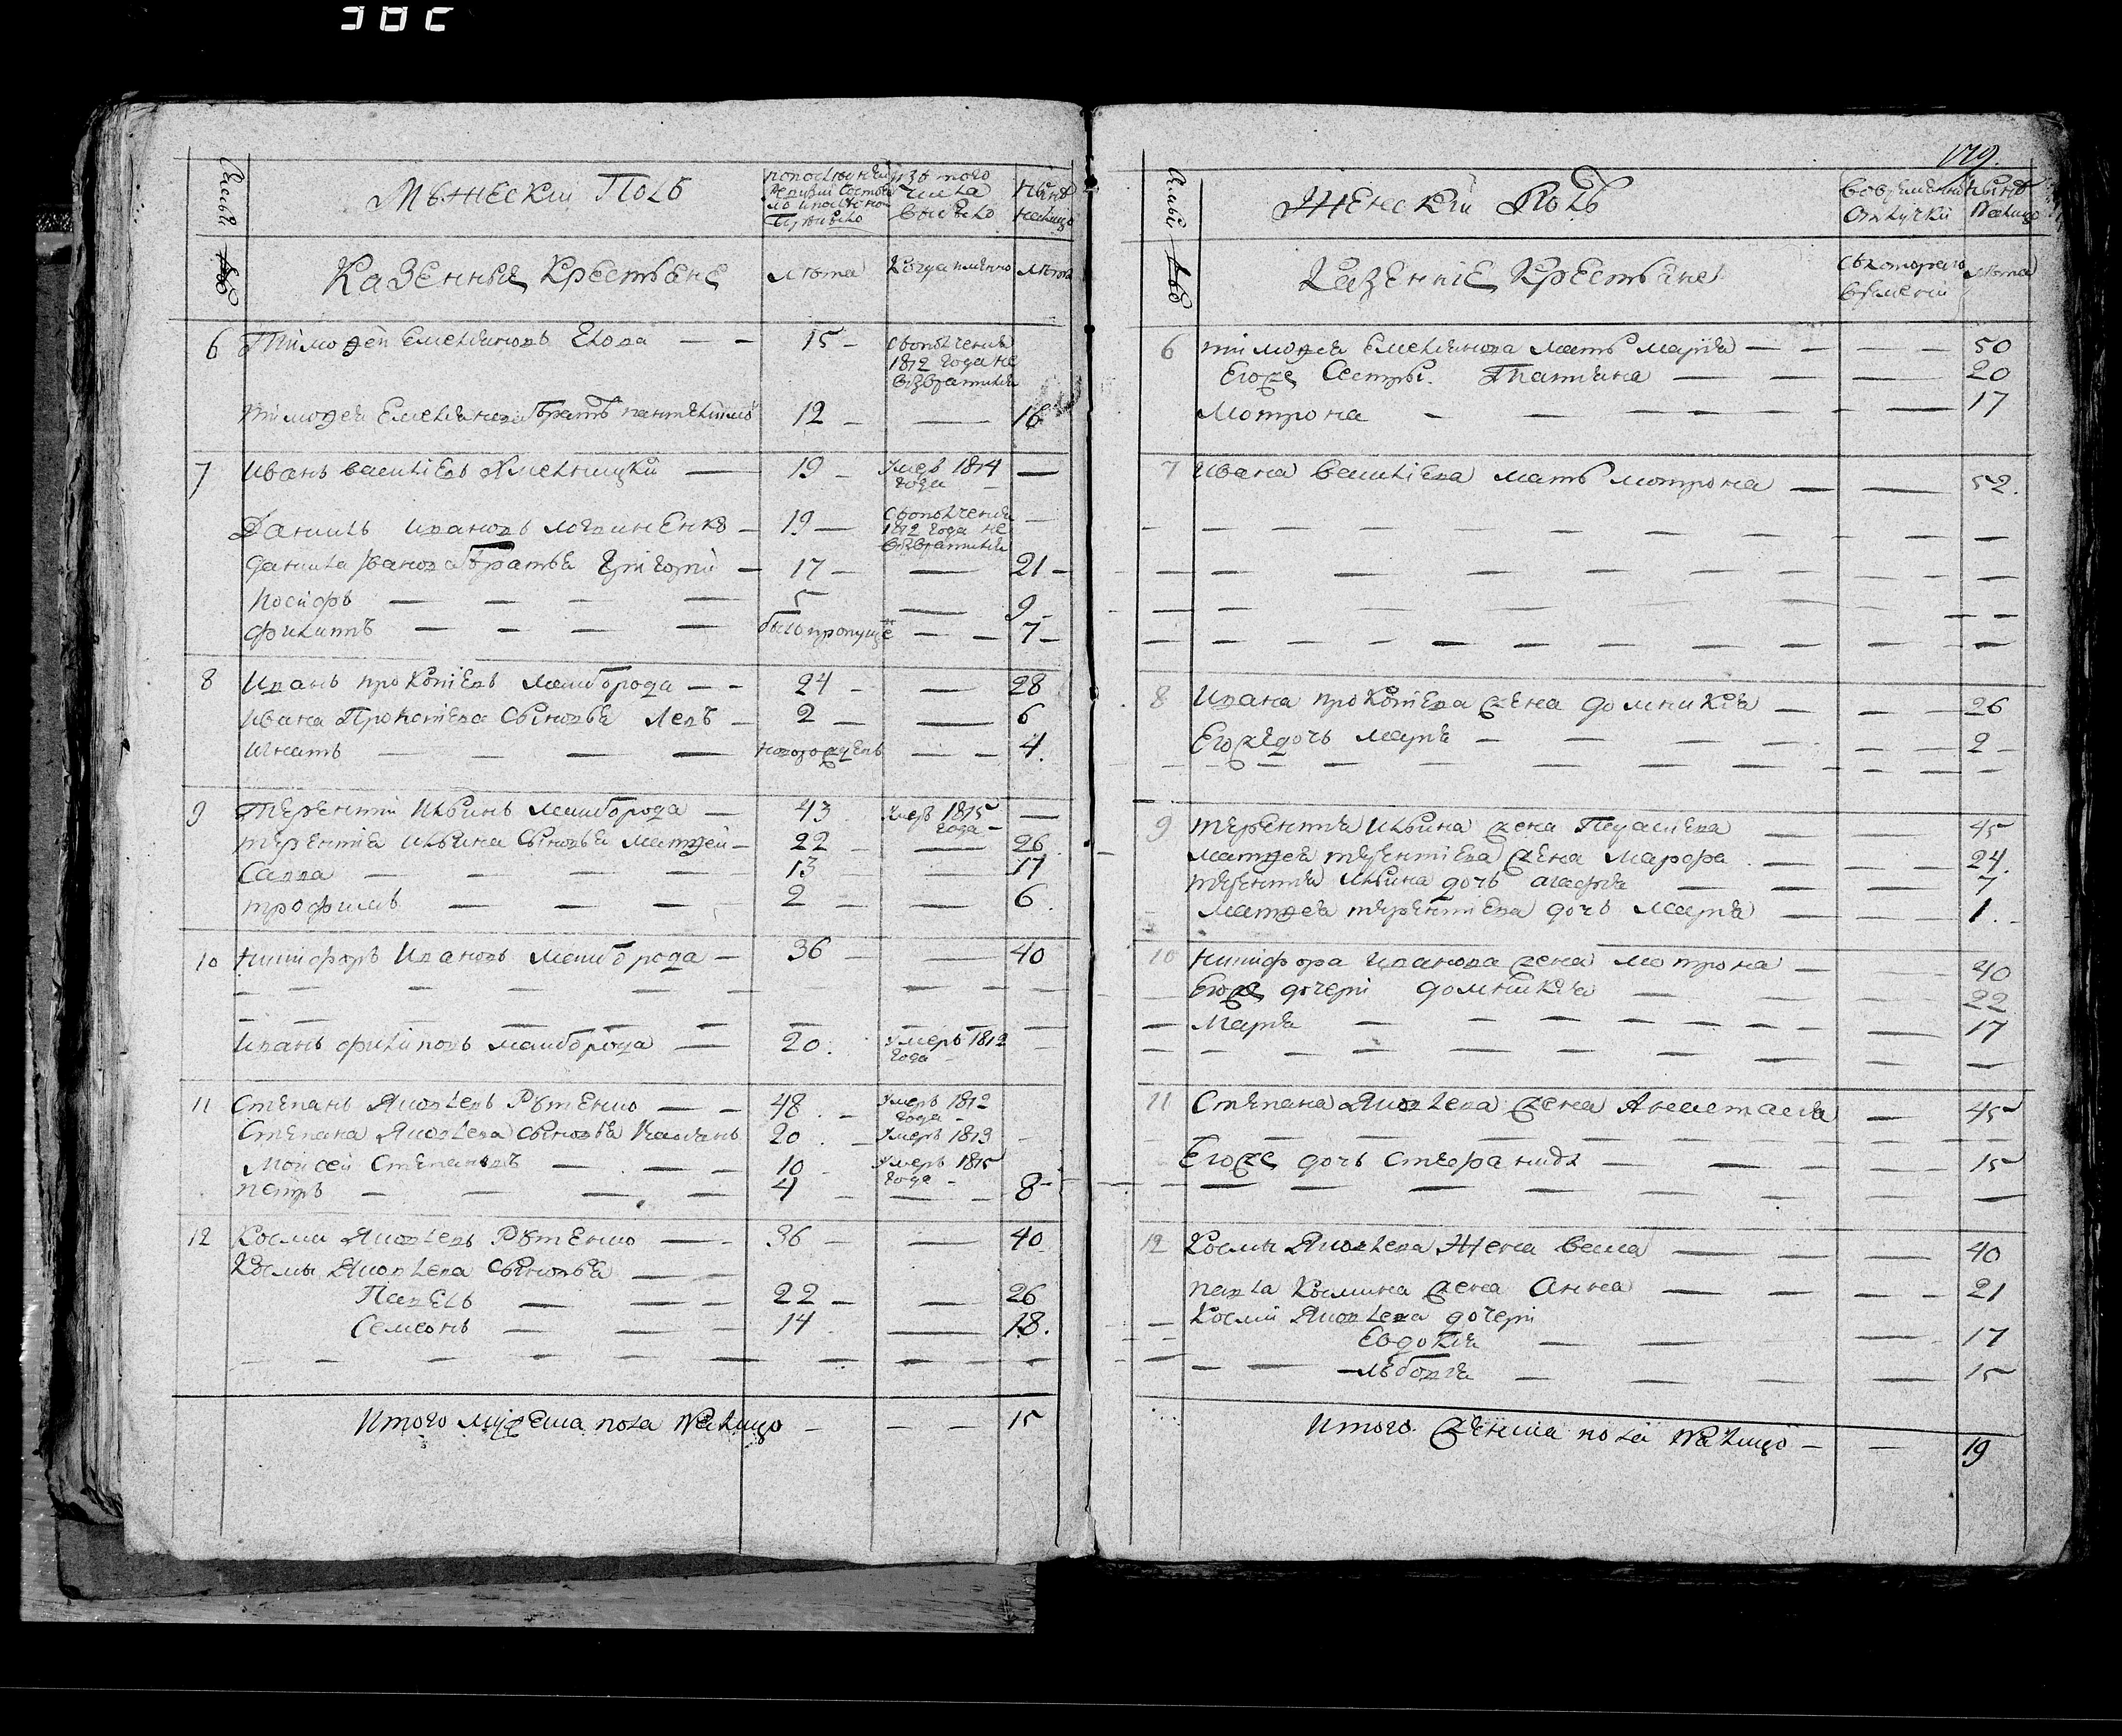 179.
Мужески Полъ
Казенные Крестьяне
лета
Когда именно
лета
6 Тимофей Емельяновъ — — 15 — Сополчения
1812 года не
возвратился
Тимофея Емельянова братъ Пантелимо 12 — — 16
7 Иванъ Василіевъ Хмельницкій — 19 — умеръ 1814 —
года —
Данилъ Ивановъ Логвиненко — 19 — Сополчения —
1812 года не
возвратился
Данила Иванова братья Григорій — 17 — — 21 —
Иосифъ — — — — 5 — 9 —
Филипъ — — — — было пропуще — — 7 —
8 Иванъ Прокопіевъ Майборода — — 24 — — 28
Ивана Прокопіева Сыновья Левъ — 2 — — 6
Игнатъ — — — новорожденъ — — 4.
9 Терентий Ильинъ Майборода — 43 умеръ 1815 —
года —
Терентія Ильина Сыновья Матфей — 22 — — 26
Савва — — — — 13 — — 17
Трофимъ — — — 2 — — 6.
10 Никифоръ Ивановъ Майборода — 36 — — 40
Иванъ Филиповъ Майборода — 20. умеръ 1812 —
года
11 Степанъ Яковлевъ — — 48. — умеръ 1812
года —
Степана Яковлева Сыновья 20. — умеръ 1813 —
Моисей Степановъ — — — 10 — умеръ 1815
года —
Петръ — — — — 4 — — — 8 —
12 Косма Яковлевъ — — 36 — — 40
Космы Яковлева Сыновья — —
Павелъ — — — 22 — — 26
Семенъ — — — 14 — 18.
Итого мужеска пола Налицо — — — 15
Женский Полъ
Во временной
отлучки
Ныне
Налицо
Казенніе Крестьяне
Скоторого
времени
лета
6 Тимофея Емельянова мать Марія — — — — 50
Егоже Сестры. Татияна — — — 20
Мотрона — — — — — — — 17
7 Ивана Василіева мать Мотрона — — 52.
8 Ивана Прокопіева жена Домникия — — — 26
Егоже дочь Марья — — — — — — 2 —
9 Терентия Ильина жена Пелагиева — — — 45
Матфея Терентіева жена Марфа — — — 24.
Терентия Ильина дочь Агафия — — — — 7
Матфея Терентиева дочь Марья — — — 1. —
10 Никифора Иванова жена Мотрона — — — 40
Егоже дочери Домникия — — — — 22
— Марья — — — — — — — — 17
11 Степана Яковлева жена Анастасия — 45
Егоже дочь Стефанида — — — — 15
12 Космы Яковлева Жена Васса — — — — 40
Павла Космина жена Анна — — — — 21
Космы Яковлева дочери
Евдокия — — — — 17
Любовя — — — — 15
Итого женска пола Налицо — — 19